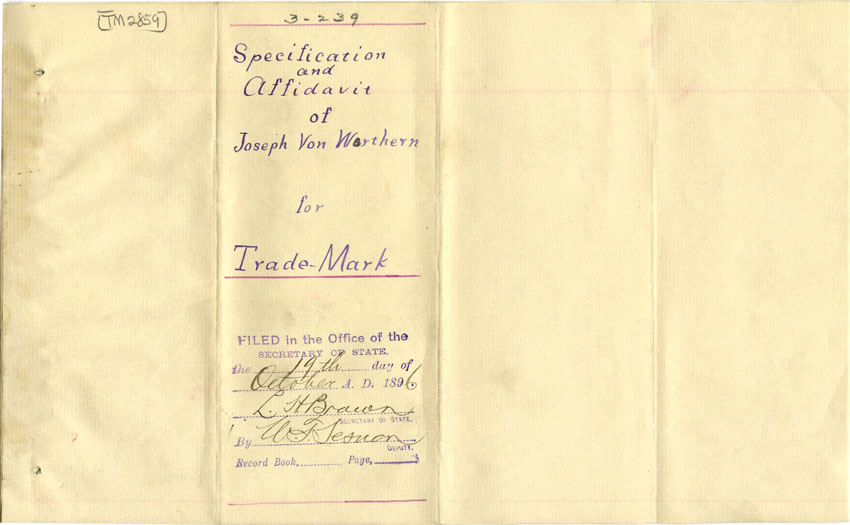 [TM2859]
3-239
Specification
and
Affidavit
of
Joseph Von Worthern
for
Trade-Mark
FILED in the Office of the
SECRETARY OF STATE.
the 19th day of
October A. D. 1896
L. H Brown
SECRETARY OF STATE.
By W. F.
DEPUTY.
Record Book, Page,